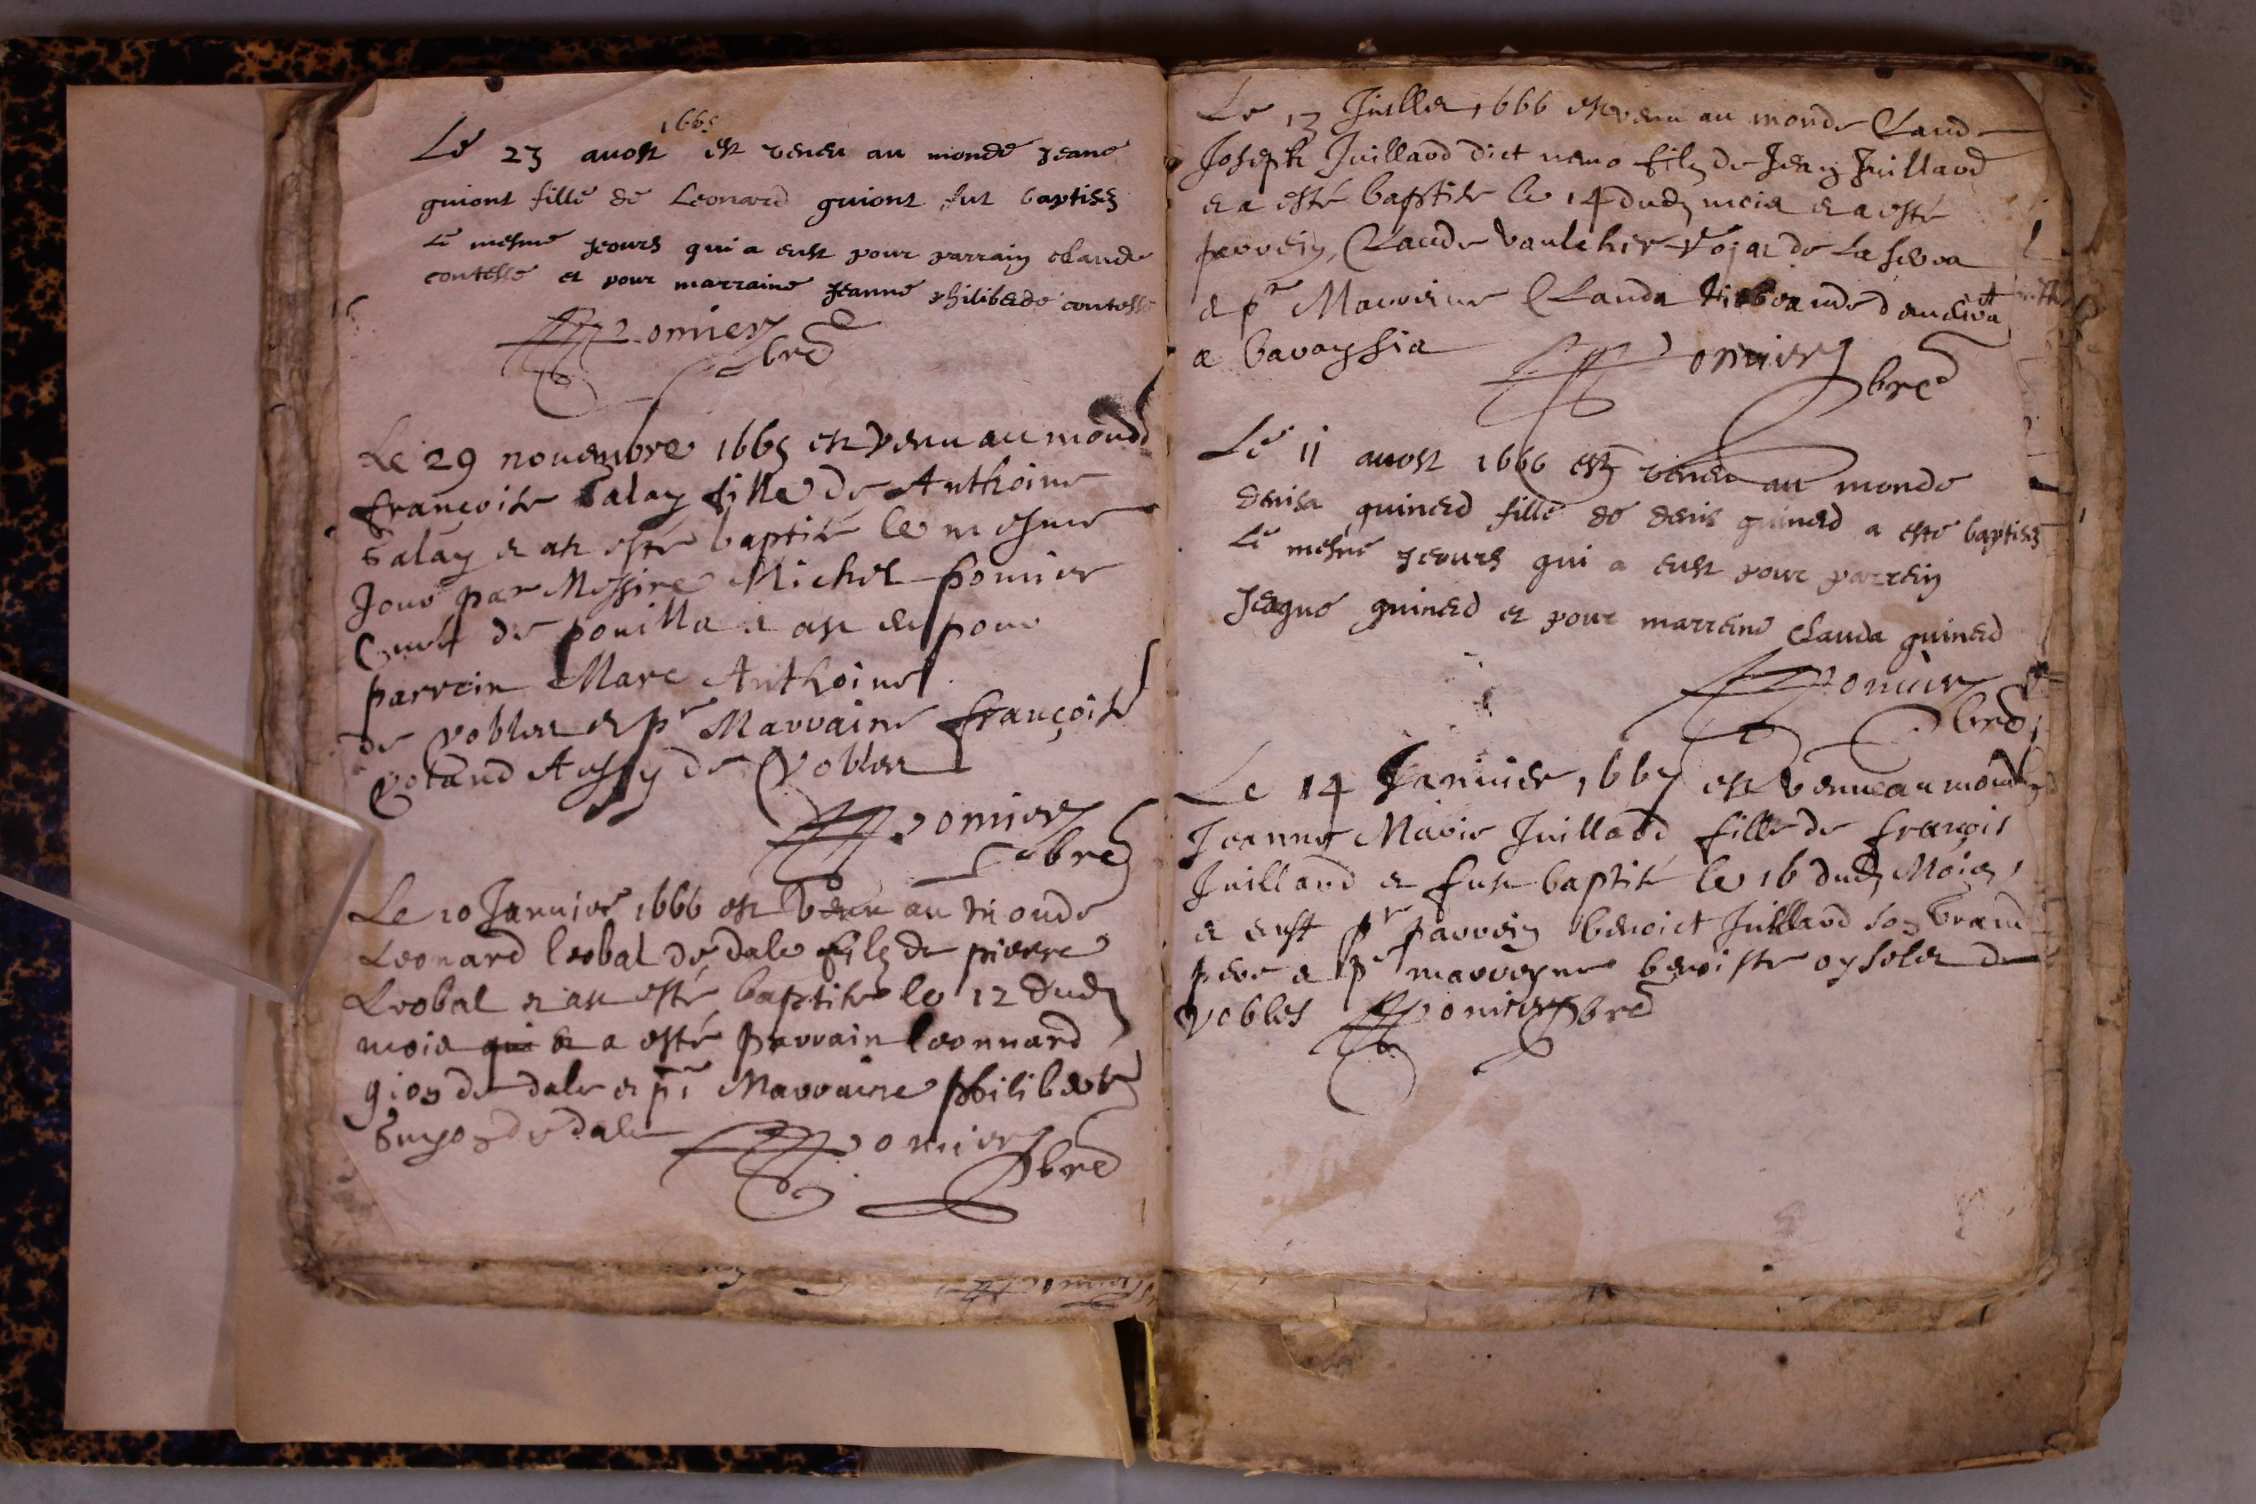 1665
Le 23 auost est veneu au monde Jeane
guiont fille de Leonard guiont fut baptisez
Le mesme Jeours qui a eust pour parrain claude
contesse et pour marraine Jeanne philiberde contesse
Pomier
pbre
Le 29 nouembre 1665 est venu au monde
françoise Galay fille de Anthoine
Galay et ast esté baptisé le mesme
Jour par Messire Michel pomier
Curé de pouilla et ast eu pour
parrein Marc Anthoine
de vobles et pr Marraine françoise
Aussy de Vobles
Pomier
pbre
Le 10 Januier 1666 est venu au monde
Leonard leobal de dale filz de pierre
Leobal et ast esté baptisé le 12 dudz
mois qui et a esté parrain leonnard
de dale et pr Marraine philiberte
Guyon de dale
Pomier
pbre
Le 13 Juillet 1666 est venu au monde Claude
Joseph Juillard dict nemo filz de Jean Juillard
et a esté baptisé le 14 dudz mois et a esté
parrein Claude
et pr Marreine Clauda
a
Pomier
pbre
Le 11 auost 1666 est veneu au monde
denisa guinerd fille de denis guinerd a esté baptisez
Le mesme Jeours qui a eust pour parrein
Jeagne guinerd et pour marreine clauda guinerd
Pomier
pbre
Le 14 Januier 1667 est venue au monde
Jeanne Marie Juillard fille de françois
Juillard et fust baptisé le 16 dudz Mois
et eust pr parrein benoict Juillard son Grand
pere et pr marreyne benoiste oyselet de
vobles Pomier pbre